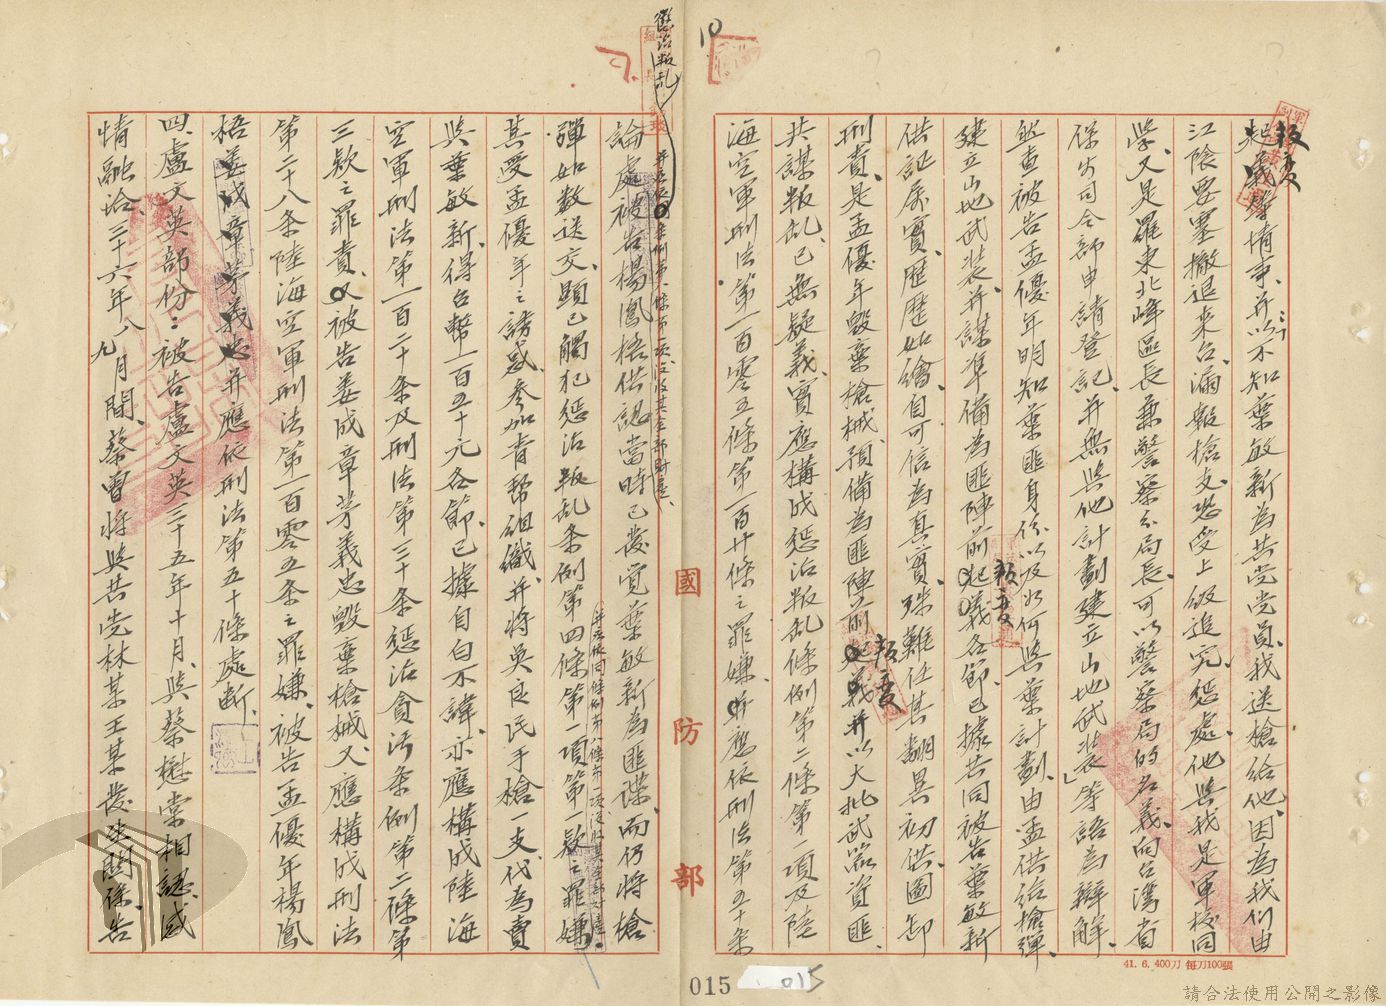 10
叛變
起義等情事、并以「不知葉敏新為共党党員、我送槍給他、因為我们由
江陰要塞撤退來台、滿報槍支、恐受上級追究惩處、他與我是軍校同
學、又是羅東北峰區長兼警察分局長、可以警察局的名義、向台灣省
保安司令部申請登記、并無與他計劃建立山地武裝」等語為辯解、
然查被告孟優年明知葉匪身份、以及如何與葉計劃、由孟供給槍彈、
叛變
建立山地武裝、并謀準備為匪陣前起義各節、已據共同被告葉敏新
供証屬實、歷歷如繪、自可信為真實、殊難任其翻異初供、圖卸
叛變
刑責、是孟優年毀棄槍械、預備為匪陣前起義、并以大批武器資匪、
共謀叛乱、已無疑義、實應構成惩治叛乱條例第二條第一項及陸
海空軍刑法第一百零五條第一百廿條之罪嫌、并應依刑法第五十條
懲治叛乱
并应依同条例第八條第一項、沒收其全部財產、
論處、被告楊鳳梧供認當時已發覺葉敏新為匪諜、而仍將槍
彈如数送交、顯已觸犯惩治叛乱条例第四條第一項第一款之罪嫌、
并应依同條例第八條第一項、沒收其全部財產、
其受孟優年之誘惑、參加青幫組織、并將吳良民手槍一支、代為賣
與葉敏新、得台幣一百五十元各節、已據自白不諱、亦應構成陸海
空軍刑法第一百二十条及刑法第三十条惩治貪污条例第二條第
三款之罪責、又被告姜成章茅義忠毀棄槍械、又應構成刑法
第二十八条陸海空軍刑法第一百零五条之罪嫌、被告孟優年楊鳳
梧姜成章茅義忠并應依刑法第五十條處断、
四、盧文英部份：被告盧文英三十五年十月、與蔡懋棠相認、感
情融洽、三十六年八九月間、蔡曾將與共党林某王某發生關係、告
國防部
41. 6. 400刀 每刀100張
015
015
請合法使用公開之影像